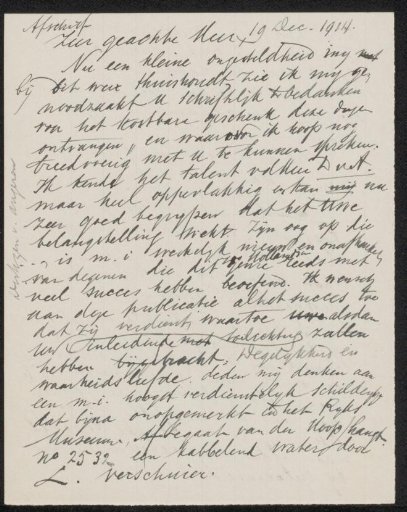 Afschrift
19 Dec. 1914.
Zeer geachte Heer,
Nu een kleine ongesteldheid mij
bij dit weer thuishoudt zie ik mij ge
noodzaakt U schriftelijk te bedanken
voor het kostbare geschenk dezer dagen
ontvangen, en waarover ik hoop nog
breedvoerig met U te kunnen spreken.
Ik kende het talent v d Heer D v A.
maar heel oppervlakkig en kan mij nu
zeer goed begrijpen dat het Uwe
belangstelling wekt. Zijn oog op die
is m.i. werkelijk nieuw en onafhankelijk
van degenen die dit genre reeds met
Holland
veel succes hebben beoefend. Ik wensch
aan deze publicatie al het succes toe
dat zij verdient, waartoe alsdan
Uw inleidende toelichting zullen
hebben bijgebracht. Degelijkheid en
waarheidsliefde deden mij denken aan
een m.i. hoogst verdienstelijk schilderij
dat bijna onopgemerkt in het Rijks
Museum, legaat van der Hoop hangt.
No 2532 een kabbelend water door
L. Verschuier.